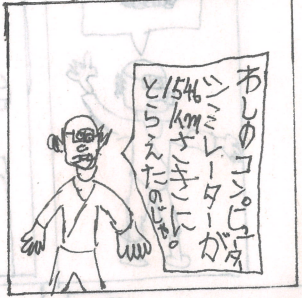 わしのコンピュータ
シミレーターが
1546
kmさきに
とらえたのじゃ。